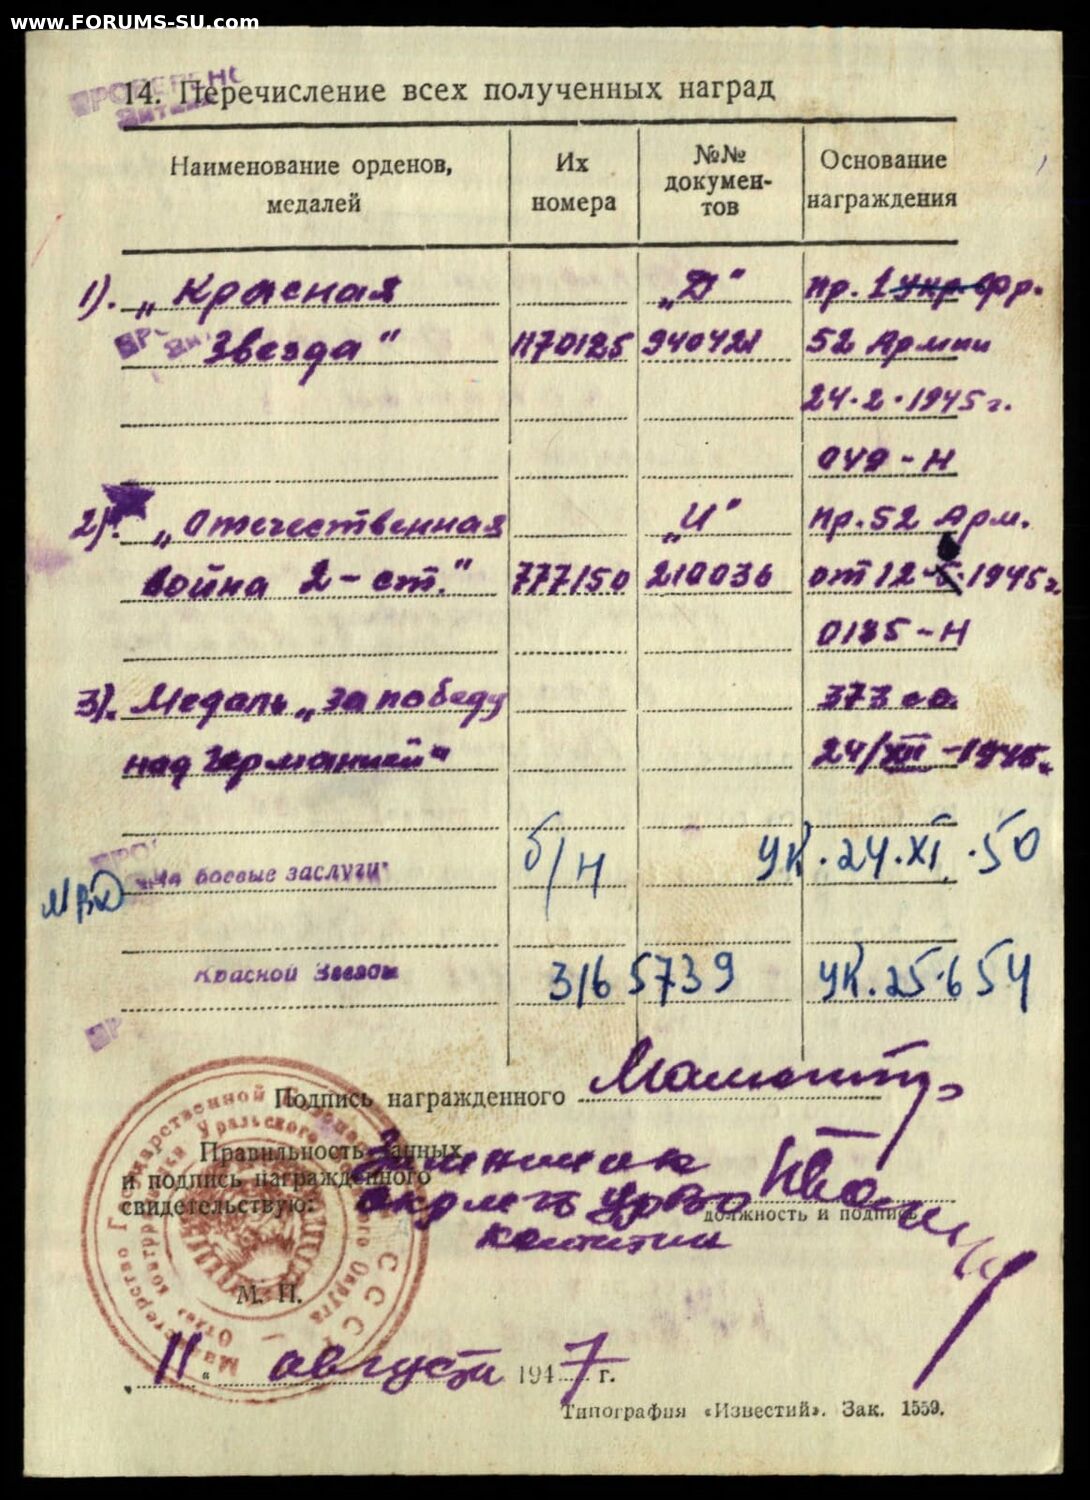 www.FORUMS-SU.com
14. Перечисление всех полученных наград
Наименование орденов, медалей
Их номера
№№ документов
Основание награждения
1). „Красная „Д" Пр. 1 Укр. Фр.
Звезда" 1170125 940421 52 Армии
24.2.1945 г.
049-Н
2). „Отечественная „И" Пр. 52 Арм.
война 2-ст." 777150 210036 от 12 1945 г.
0185-Н
3). Медаль „за победу 373
над Германией" 24/XII-1945.
МВД За боевые заслуги б/н УК. 24.XI.50
Красной Звезды 3165739 УК. 25.6 54
Подпись награжденного
Правильность данных
и подпись награжденного
свидетельствую:
должность и подпись
М. П.
11 августа 1947 г.
Типография «Известий». Зак. 1559.